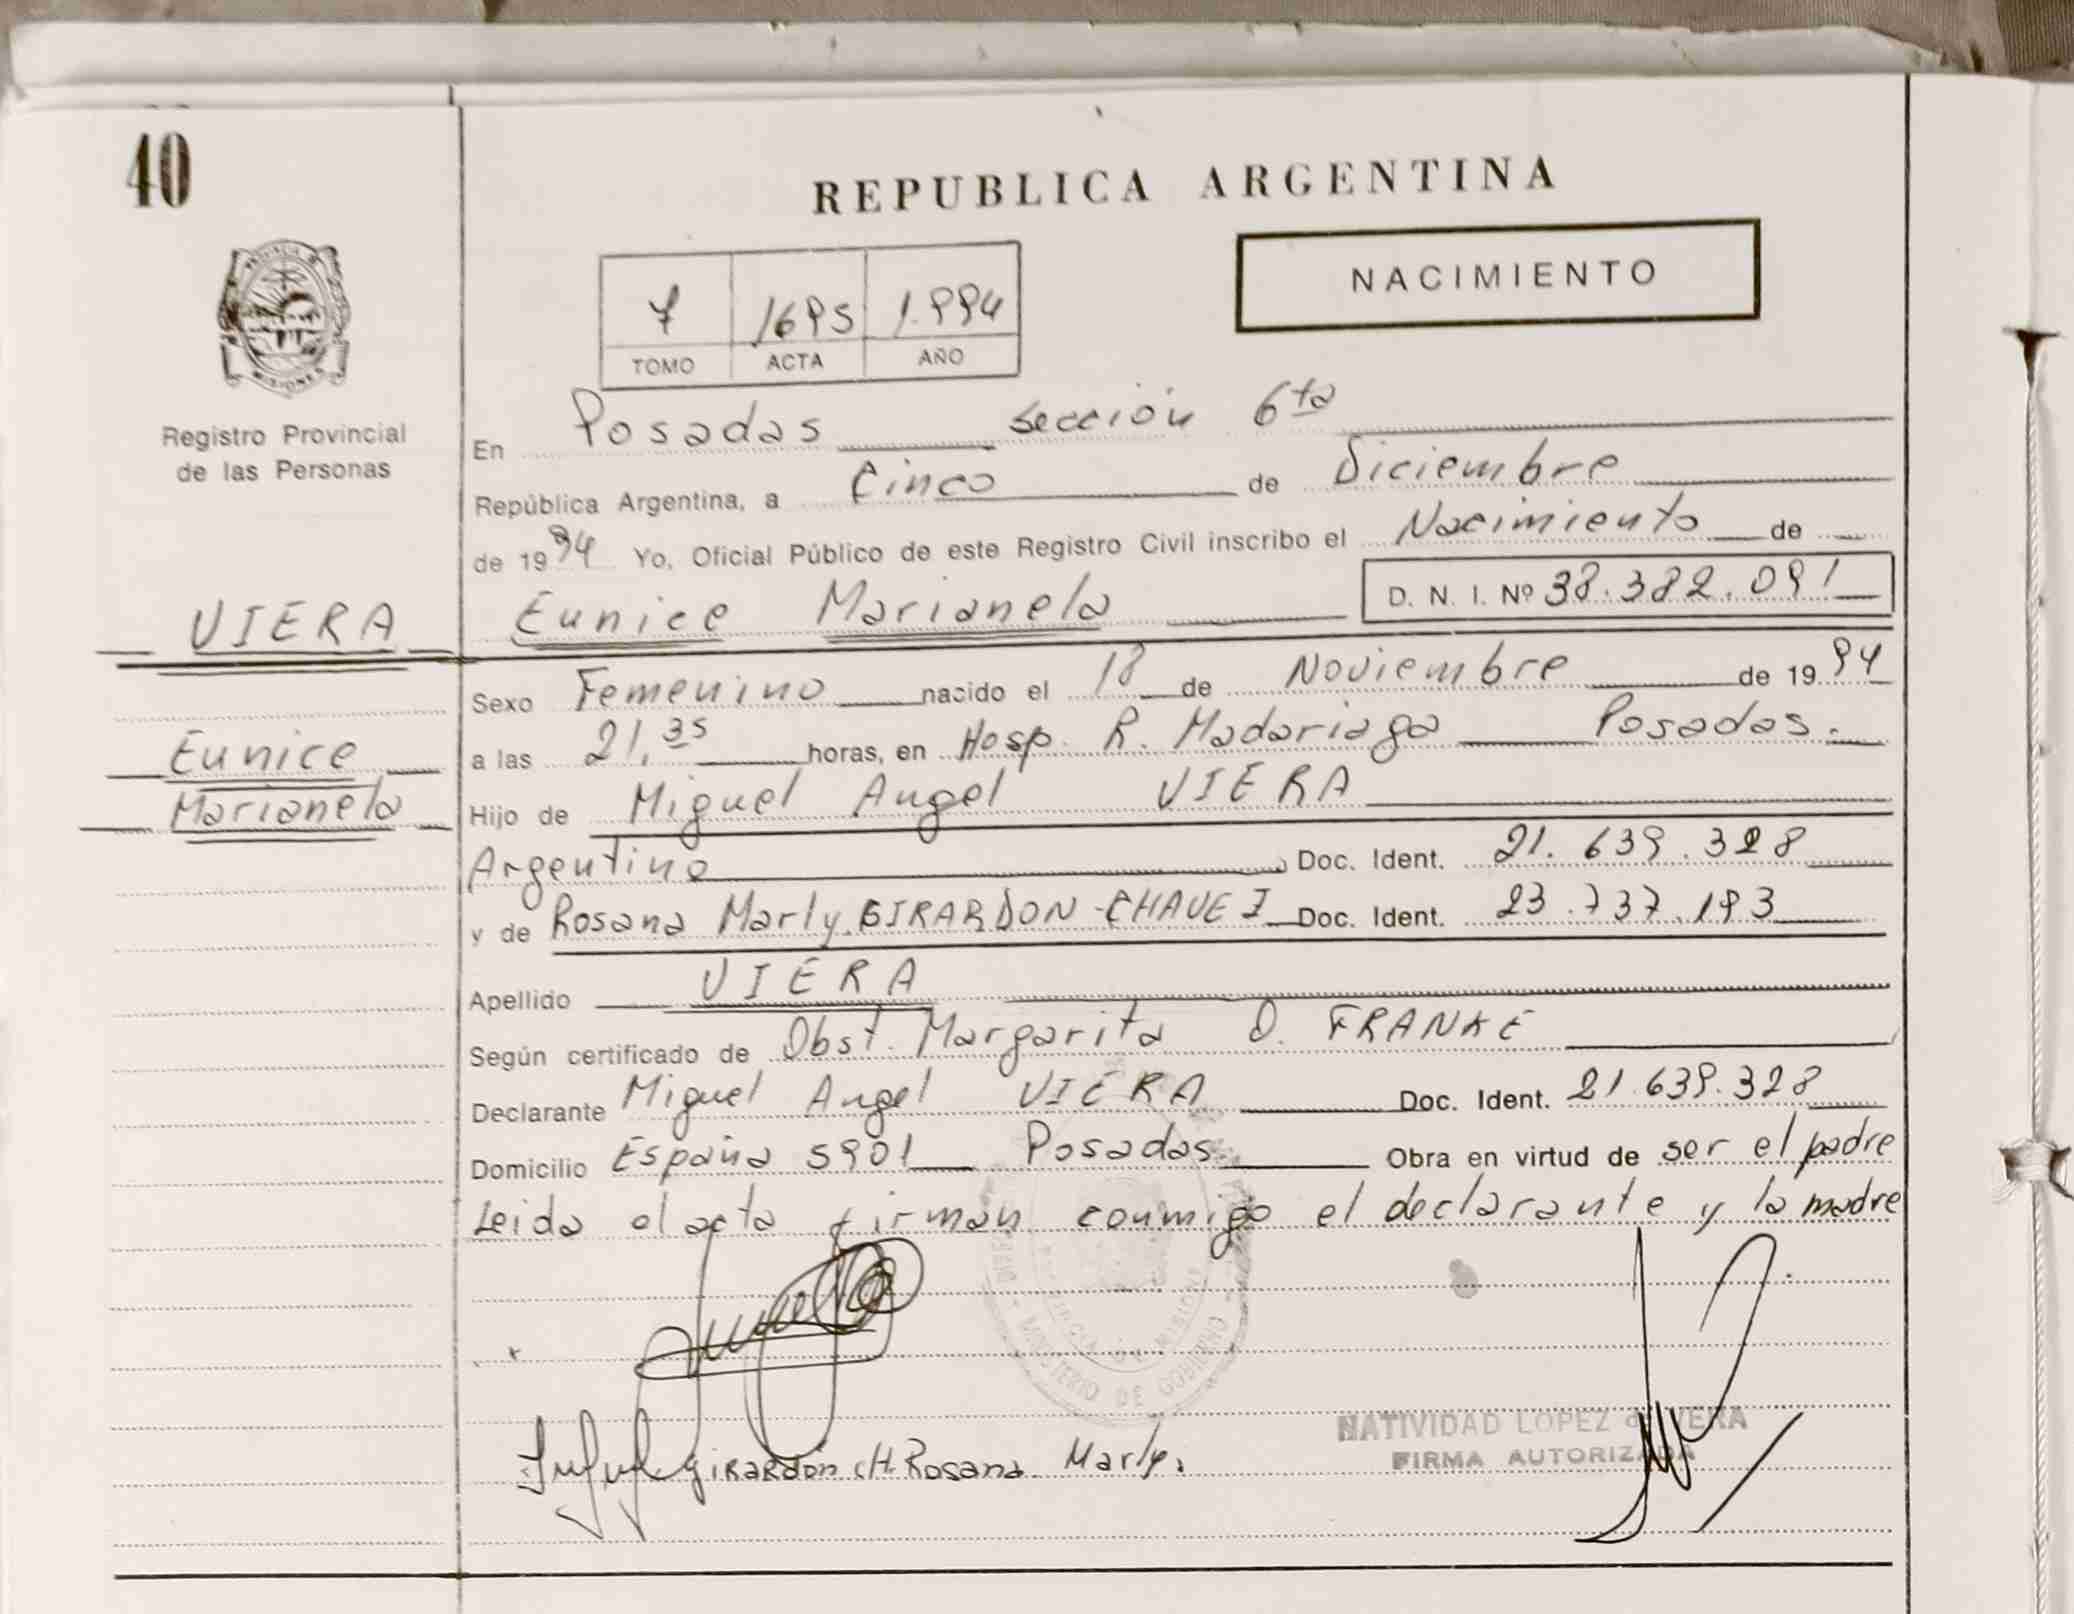 40
REPUBLICA ARGENTINA
NACIMIENTO
7 1695 1.994
TOMO ACTA AÑO
PROVINCIA DE MISIONES
Registro Provincial
de las Personas
En Posadas sección 6ta
República Argentina, a Cinco de Diciembre
de 1994 Yo, Oficial Público de este Registro Civil inscribo el Nacimiento de
VIERA Eunice Marianela D. N. I. Nº 38.382.091
Sexo Femenino nacido el 18 de Noviembre de 1994
Eunice a las 21,35 horas, en Hosp. R. Madariaga Posadas.
Marianela Hijo de Miguel Angel VIERA
Argentino Doc. Ident. 21.639.328
y de Rosana Marly GIRARDON-CHAVEZ Doc. Ident. 23.737.193
Apellido VIERA
Según certificado de Obst. Margarita O. FRANKE
Declarante Miguel Angel VIERA Doc. Ident. 21.639.328
Domicilio España 5901 Posadas Obra en virtud de ser el padre
Leida el acta firman conmigo el declarante y la madre
MINISTERIO DE GOBIERNO
NATIVIDAD LOPEZ de VERA
FIRMA AUTORIZADA
GIRARdon CH. Rosana Marly.